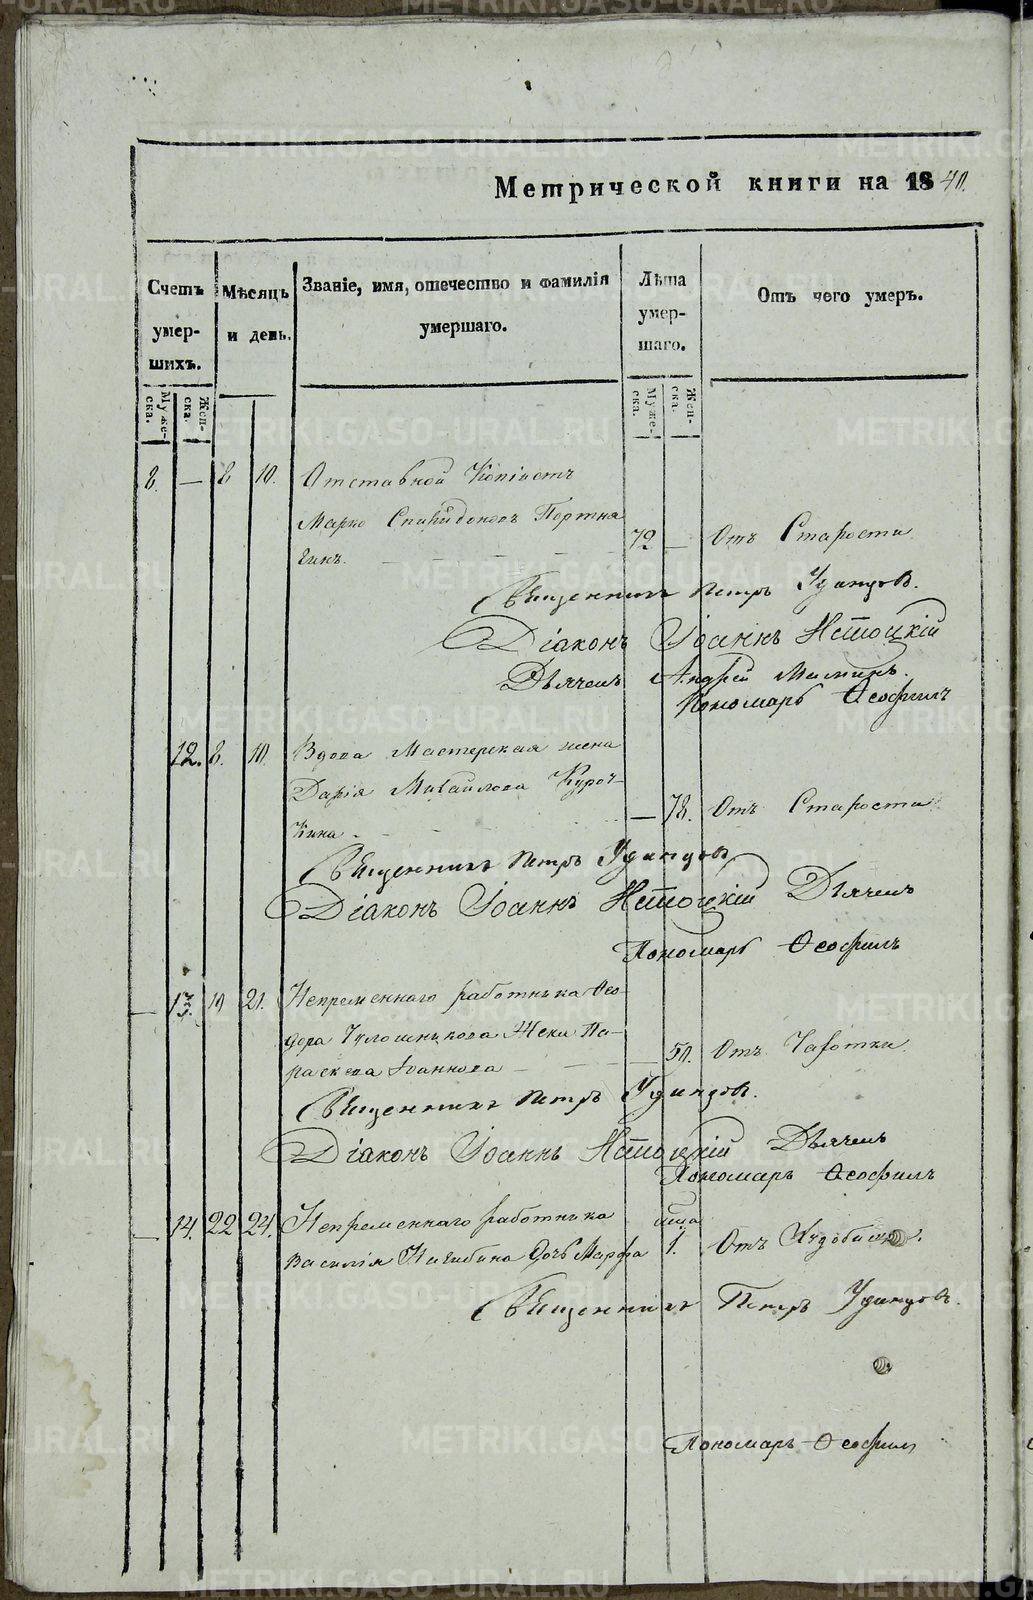 Метрической книги на 1840.
Счетъ умерших. Мѣсяцъ и день. Званіе, имя, отечество и фамилія умершаго. Лѣта умершаго. Отъ чего умеръ.
Муже-ска. Жен-ска. Муже-ска. Жен-ска.
8. — 8 10. Отставной Копіистъ
Марко Спиридоновъ Портня
гинъ. 72 — Отъ Старости
Священникъ Петръ Удинцовъ.
Діаконъ Іоаннъ
Дьячекъ Андрей Маминъ.
Пономарь Ѳеофилъ
12. 8. 10. Вдова Мастерская жена
Дарія Михайлова Куроч-
кина — 78. Отъ Старости
Священникъ Петръ Удинцовъ
Діаконъ Іоаннъ Дьячекъ
Пономарь Ѳеофилъ
— 13. 19 21. Непременнаго работника Ѳео-
дора Жена Па-
раскева Іоаннова — 50. Отъ Чахотки.
Священникъ Петръ Удинцовъ.
Діаконъ Іоаннъ Дьячекъ
Пономарь Ѳеофилъ
— 14. 22 24. Непременнаго работника
Василія Нагибина Дочь Марфа 1. Отъ
Священникъ Петръ Удинцовъ.
Пономарь Ѳеофилъ
METRIKI.GASO-URAL.RU